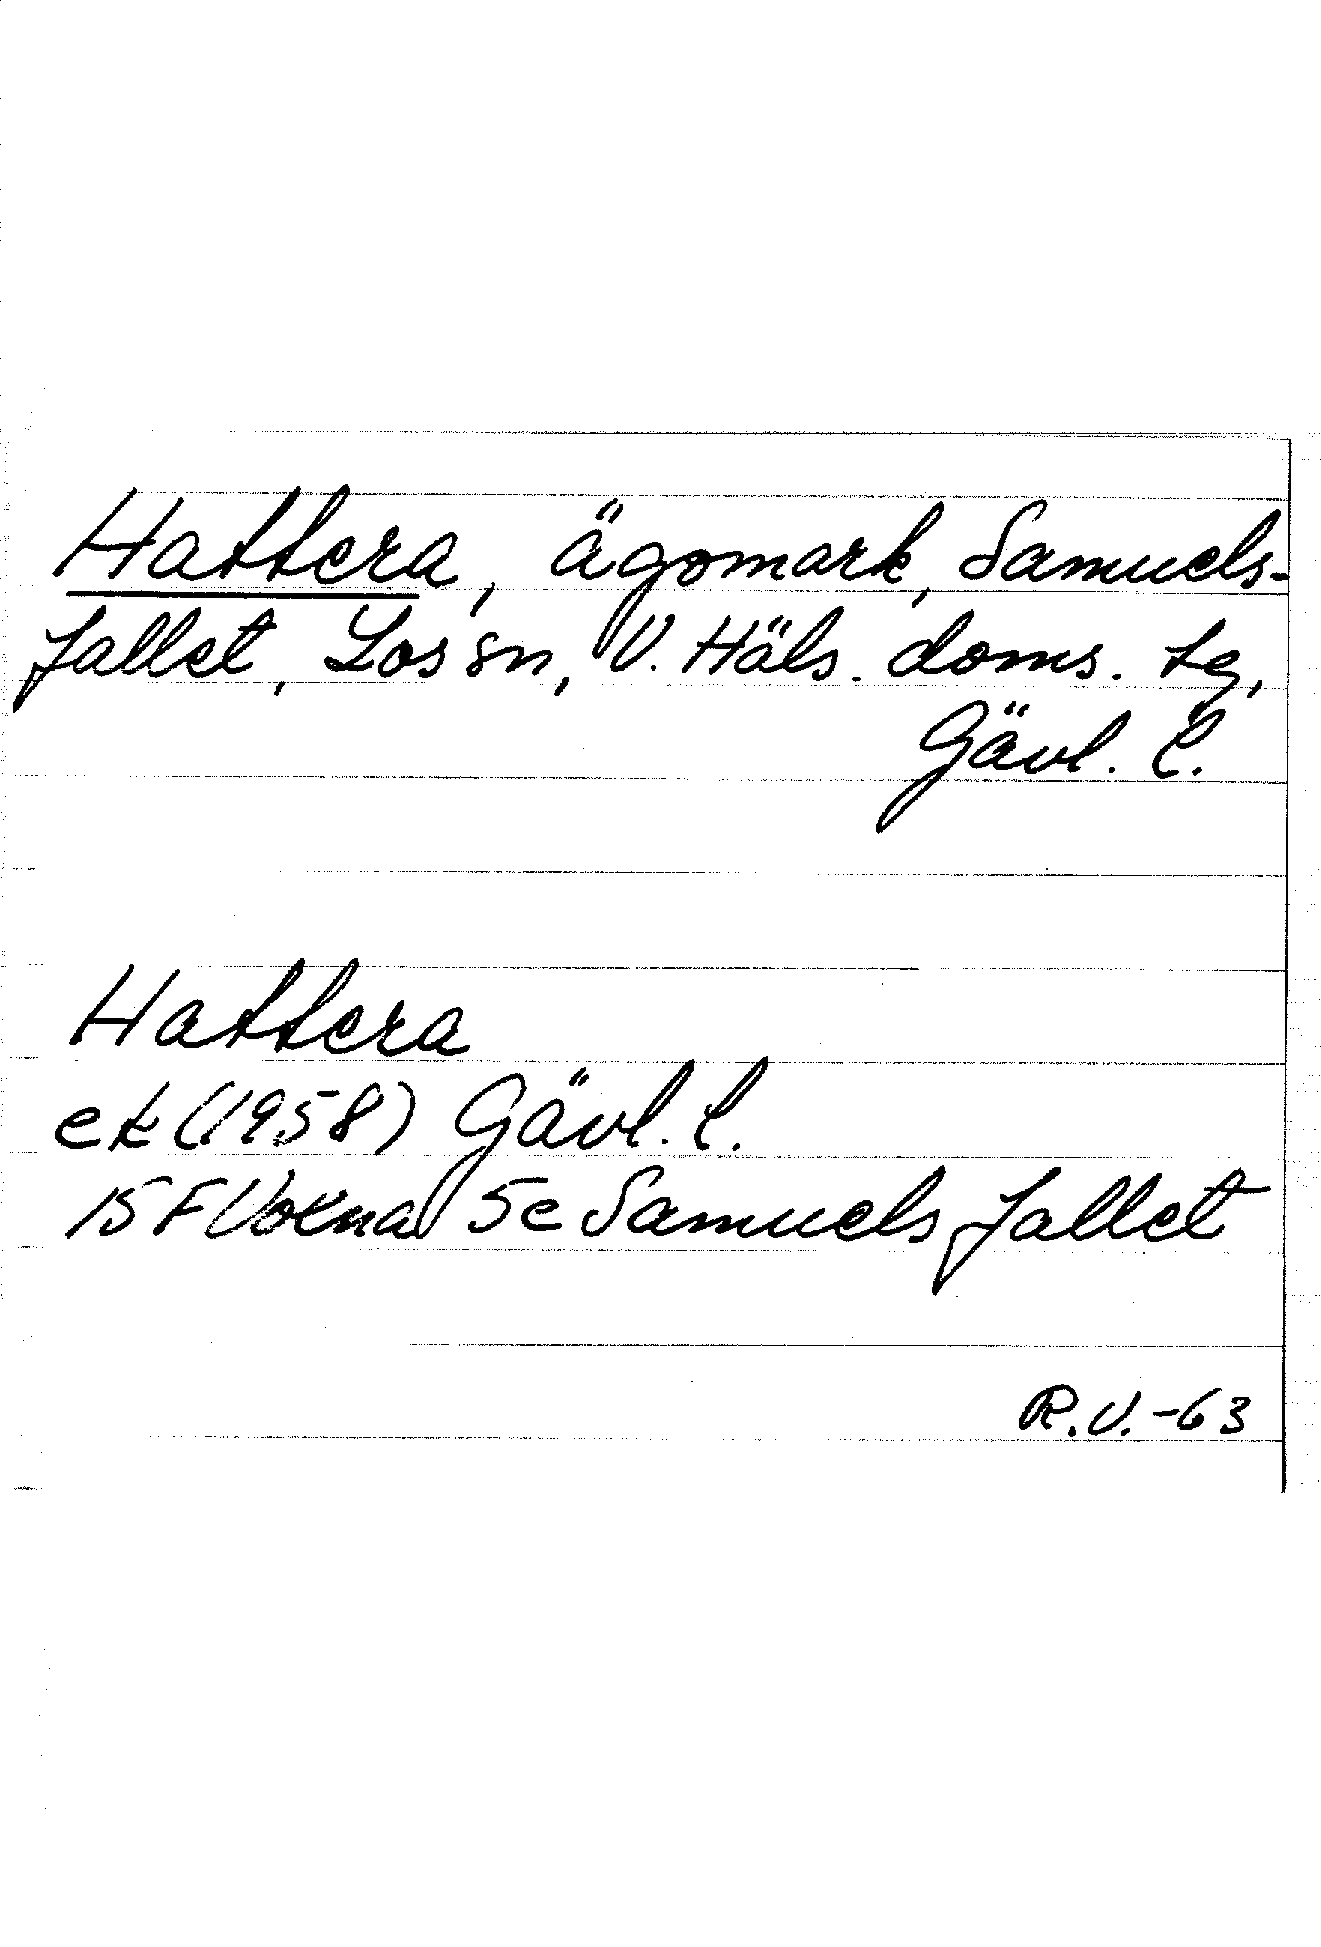 Hattera, ägomark, Samuels-
fallet, Los sn, V. Häls. doms. tg,
Gävl. l.
Hattera
ek (1958) Gävl. l.
15 F Voxna 5e Samuelsfallet
R.V.-63